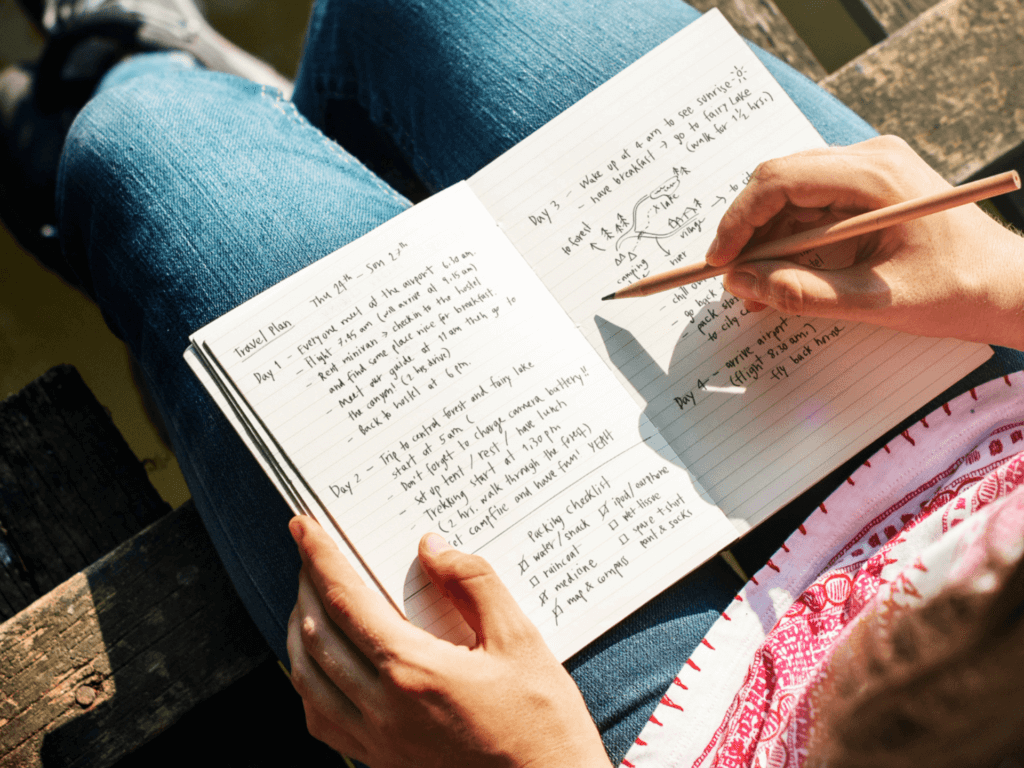 Travel Plan Thu 29th - Sun 2nd
Day 1 - Everyone meet at the airport 6.30 am.
- Flight 7.45 am (will arrive at 9.15 am)
- Rent minivan > check in to the hostel
and find some place nice for breakfast
- Meet our guide at 11 am then go to
the canyon! (2 hrs. drive)
- Back to hostel at 6 pm.
Day 2 - Trip to central forest and fairy lake
start at 5 am (
- Don't forget to charge camera battery!!
- Set up tent / rest / have lunch
- Trekking start at 1.30 pm
(2 hrs. walk through the forest)
campfire and have fun! YEAH
Packing checklist
water/snack
raincoat
medicine
map & compass
ipod/earphone
wet tissue
spare t-shirt
pant & socks
Day 3 - Wake up at 4 am to see sunrise
- have breakfast → go to fairy Lake
(walk for 1 1/2 hrs.)
to forest
lake
village
river
camping
to
chill
go back
pack
to city
Day 4 - arrive airport
(flight 8.30 am.)
fly back home